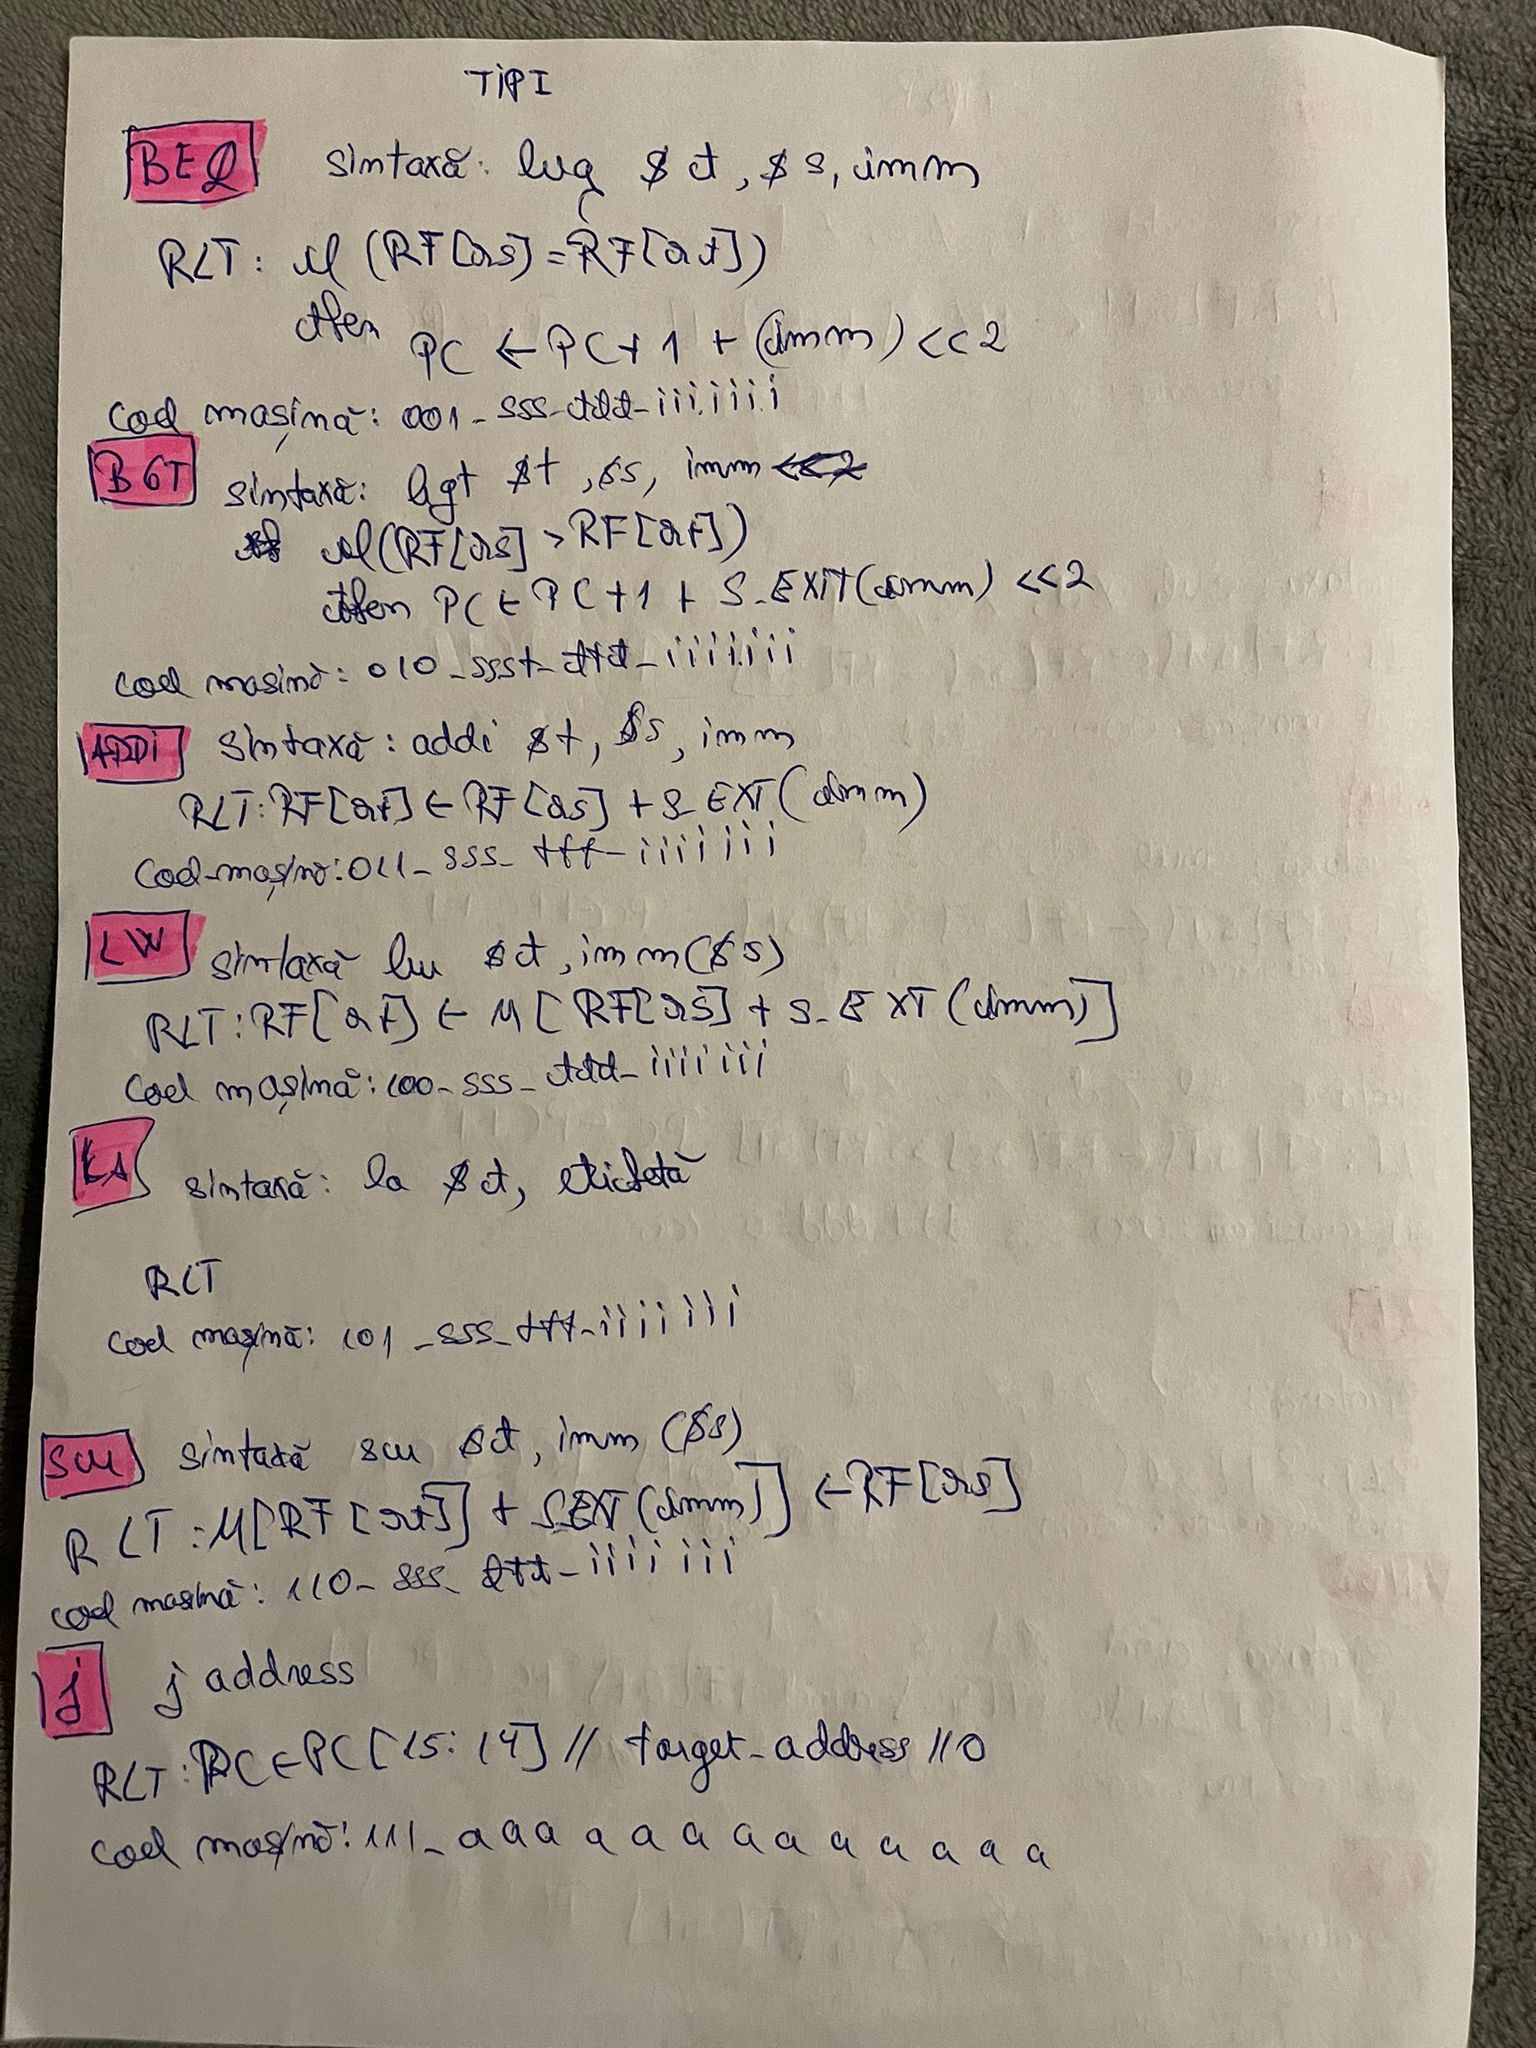 TIP I
BEQ sintaxă: beq $t, $s, imm
RLT: if (RF[rs] = RF[rt])
then PC ← PC + 1 + (imm) << 2
cod mașină: 001_sss_ttt_iiiiiii
BGT sintaxă: bgt $t, $s, imm <<2
if (RF[rs] > RF[rt])
then PC ← PC + 1 + S_EXIT(imm) <<2
cod masină: 010_ssst_ttt_iiiiiii
ADDi sintaxă: addi $t, $s, imm
RLT: RF[rt] ← RF[rs] + S_EXT(imm)
Cod mașină: 011_sss_ttt_iiiiiii
LW sintaxă lw $t, imm($s)
RLT: RF[rt] ← M[RF[rs] + S_EXT(imm)]
Cod mașină: 100_sss_ttt_iiiiiii
LA sintaxă: la $t, etichetă
RLT
cod mașină: 101_sss_ttt_iiiiiii
SW sintaxă sw $t, imm ($s)
RLT: M[RF[rt]] + S_EXT(imm)] ← RF[rs]
cod masină: 110_sss_ttt_iiiiiii
j j address
RLT: PC ← PC[15:14] // target_address // 0
cod mașină: 111_aaaaaaaaaaaaa